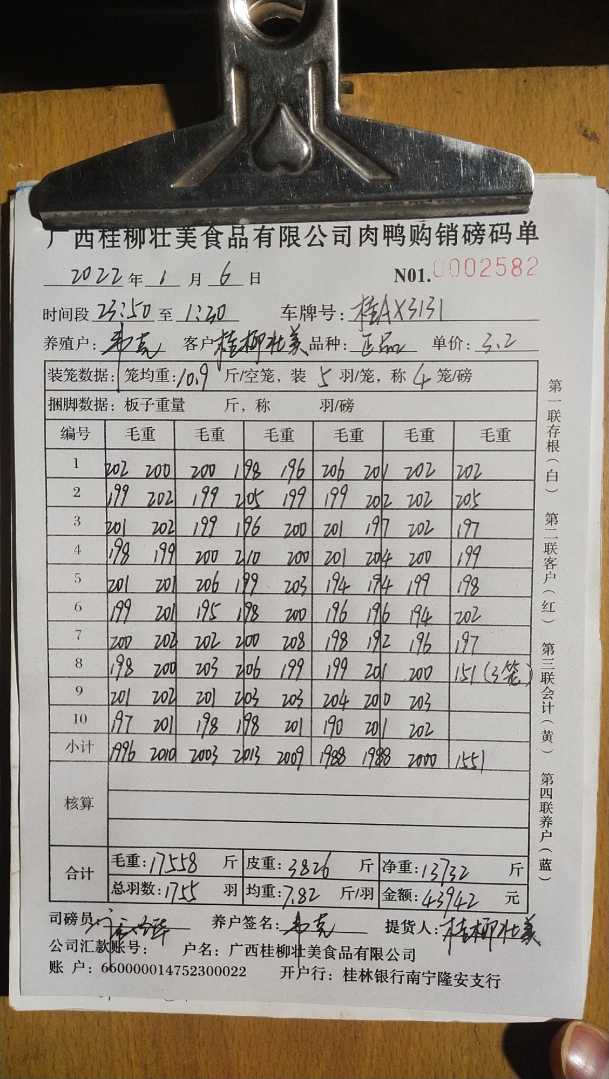 广西桂柳壮美食品有限公司肉鸭购销磅码单
2022年1月6日 N01.0002582
时间段 23:50 至 1:20 车牌号: 桂AX3131
养殖户: 韦克 客户 桂柳壮美 品种: 正品 单价: 3.2
装笼数据: 笼均重: 10.9 斤/空笼, 装 5 羽/笼, 称 4 笼/磅
捆脚数据: 板子重量 斤, 称 羽/磅
编号 毛重 毛重 毛重 毛重 毛重 毛重
1 202 200 200 198 196 206 201 202 202
2 199 202 199 205 199 199 202 202 205
3 201 202 199 196 200 201 197 202 197
4 198 199 200 210 200 201 204 200 199
5 201 201 206 199 203 194 194 199 198
6 199 201 195 198 200 196 196 194 202
7 200 202 202 200 208 198 192 196 197
8 198 200 203 206 199 199 201 200 151(3笼)
9 201 202 201 203 203 204 200 203
10 197 201 198 198 201 190 201 202
小计 1996 2010 2003 2013 2009 1988 1988 2000 1551
核算
合计 毛重: 17558 斤 皮重: 3826 斤 净重: 13732 斤
总羽数: 1755 羽 均重: 7.82 斤/羽 金额: 43942 元
司磅员: 养户签名: 韦克 提货人: 桂柳壮美
公司汇款账号: 户名: 广西桂柳壮美食品有限公司
账 户: 660000014752300022 开户行: 桂林银行南宁隆安支行
第一联存根(白) 第二联客户(红) 第三联会计(黄) 第四联养户(蓝)